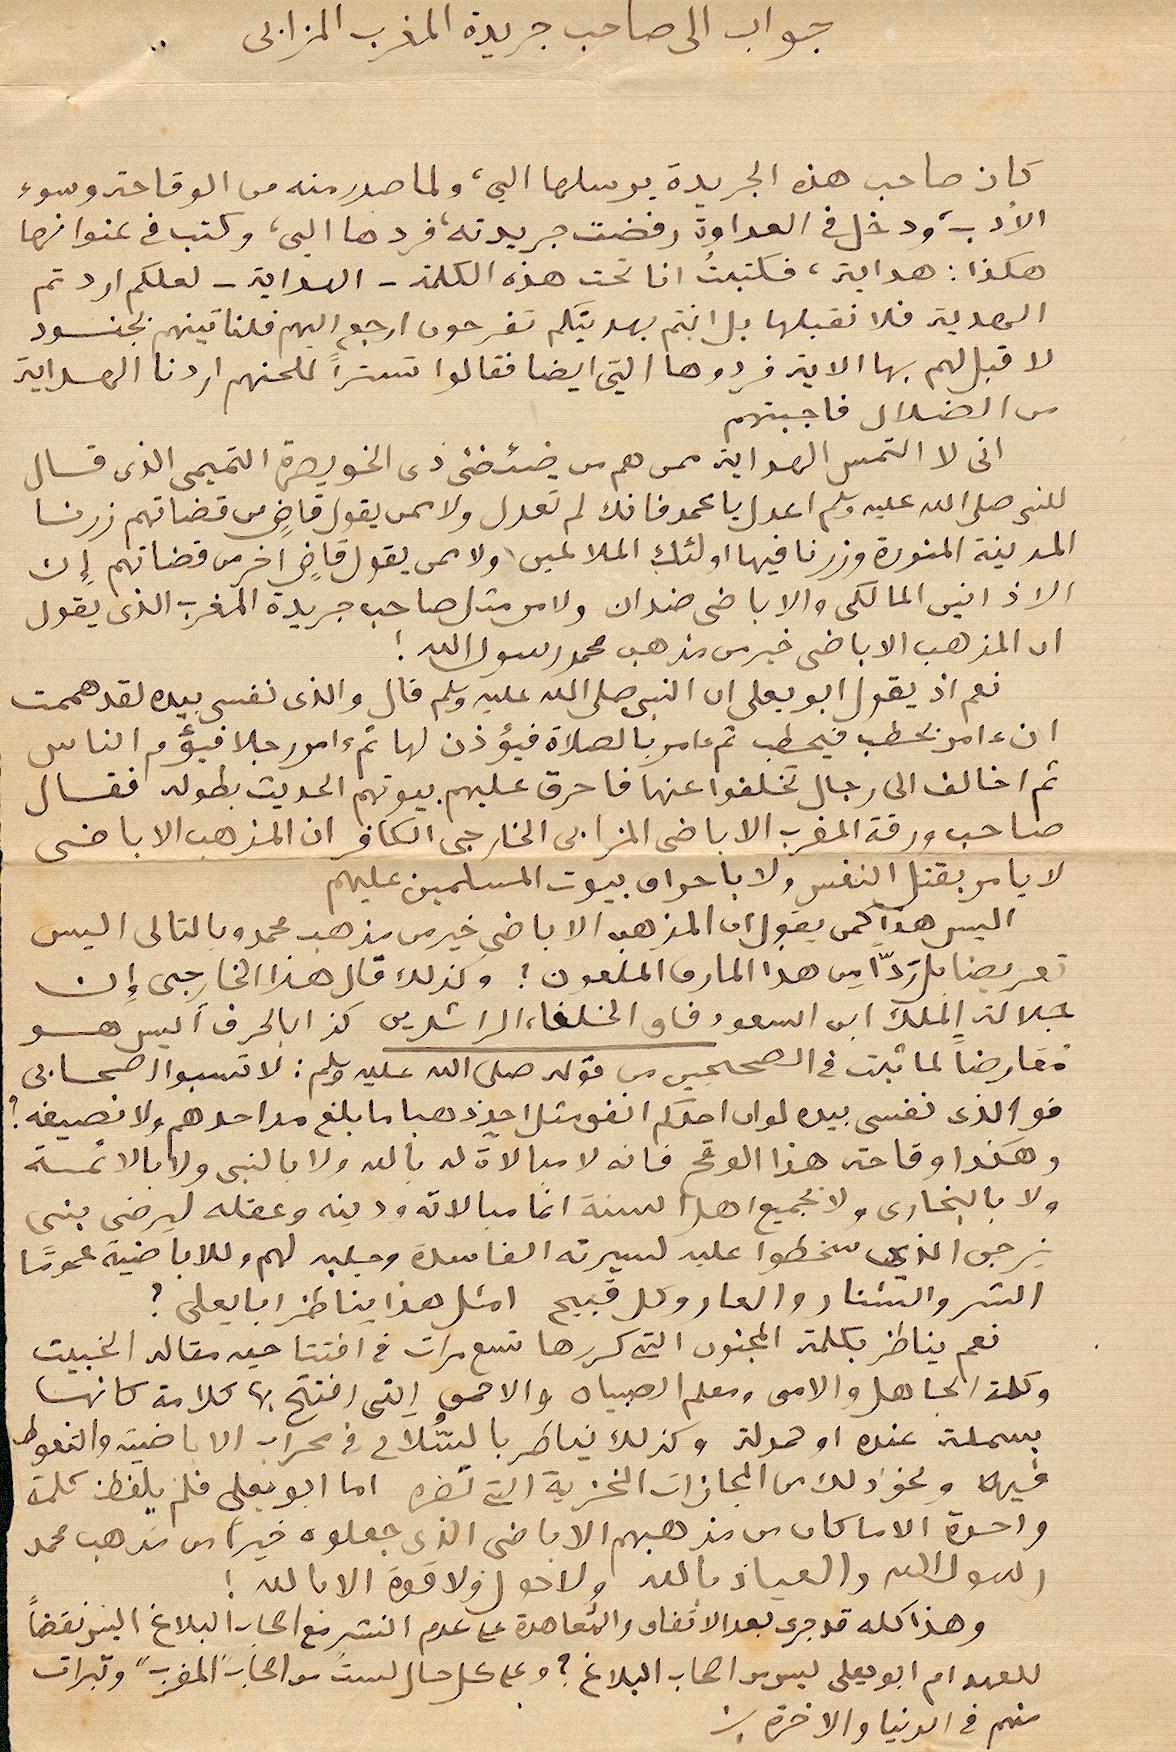 جواب الى صاحب جريدة المغرب المزابى
كان صاحب هذه الجريدة يرسلها الي، ولما صدر منه من الوقاحة وسوء
الأدب، ودخل في العداوة رفضت جريدته، فردها الى، وكتب فى عنوانها
هكذا: هداية، فكتبتُ انا تحت هذه الكلمة - الهداية - لعلكم اردتم
الهدية فلا نقبلها بل انتم بهديتكم تفرحون ارجع اليهم فلناتينهم بجنود
لا قبل لهم بها الاية فردوها الىّ ايضا فقالوا تستراً للحنهم اردنا الهداية
من الضلال فاجبتهم
انى لا التمس الهداية ممن هم من ضئضئى ذى الخويصرة التميمى الذى قال
للنبى صلى الله عليه وسلم اعدل يا محمد فانك لم تعدل ولا ممن يقول قاضٍ من قضاتهم زرنا
المدينة المنورة وزرنا فيها اولئك الملاعين، ولا ممن يقول قاضٍ آخر من قضاتهم إن
الاذانين المالكى والاباضى ضدان ولا من مثل صاحب جريدة المغرب الذى يقول
ان المذهب الاباضى خير من مذهب محمد رسول الله!
نعم اذ يقول ابو يعلى ان النبى صلى الله عليه وسلم قال والذى نفسى بيده لقد هممت
ان ءامر بحطب فيحطب ثم ءامر بالصلاة فيؤذن لها ثم ءامر رجلا فيؤم الناس
ثم اخالف الى رجال تخلفوا عنها فاحرق عليهم بيوتهم الحديث بطوله فقال
صاحب ورقة المغرب الاباضى المزابى الخارجى الكافر ان المذهب الاباضى
لا يامر بقتل النفس ولا باحراق بيوت المسلمين عليهم
اليس هذا كمن يقول ان المذهب الاباضى خير من مذهب محمد وبالتالى اليس
تعريضا بل ردّاً من هذا المارق الملعون؟ وكذلك قال هذا الخارجى إن
جلالة الملك ابن السعود فاق الخلفاء الراشدين كذا بالحرف أليس هو
مُعَارضاً لما ثبت فى الصحيحين من قوله صلى الله عليه وسلم: لا تسبوا اصحابى
فو الذى نفسى بيده لو ان احدكم انفق مثل احدٍ ذهبا ما بلغ مد احدهم ولا نصيفه؟
وهكذا وقاحة هذا الوقح فانه لا مبالاة له بالله ولا بالنبى ولا بالائمة
ولا بالبخارى ولا بجميع اهل السنة انما مبالاته ودينه وعقله ليرضى بنى
يزجن الذين سخطوا عليه لسيرته الفاسدة وجلبه لهم وللاباضية عموما
الشر والشنار والعار وكل قبيح امثل هذا يناظر ابا يعلى؟
نعم يناظر بكلمة المجنون التى كررها تسع مرات فى افتتاحية مقاله الخبيث
وكلمة الجاهل والامى ومعلم الصبيان والاحمق التى افتتح بها كلامه كانها
بسملة عنده او حمدلة وكذلك يناظر با فى محراب الاباضية والتغوط
فيها ونحو ذلك من المجازات المخزية التى تضره اما ابو يعلى فلم يلفظ كلمة
واحدة الا ما كان من مذهبهم الاباضى الذى جعلوه خيرا من مذهب محمد
رسول الله والعياذ بالله ولا حول ولا قوة الا بالله!
وهذا كله قد جرى بعد الاتفاق والمعاهدة على عدم النشر مع اصحاب البلاغ اليس نقضاً
للعهد ام ابو يعلى ليس من اصحاب البلاغ؟ وعلى كل حال لستُ من اصحاب "المغرب" وتبرات
منهم فى الدنيا والاخرة